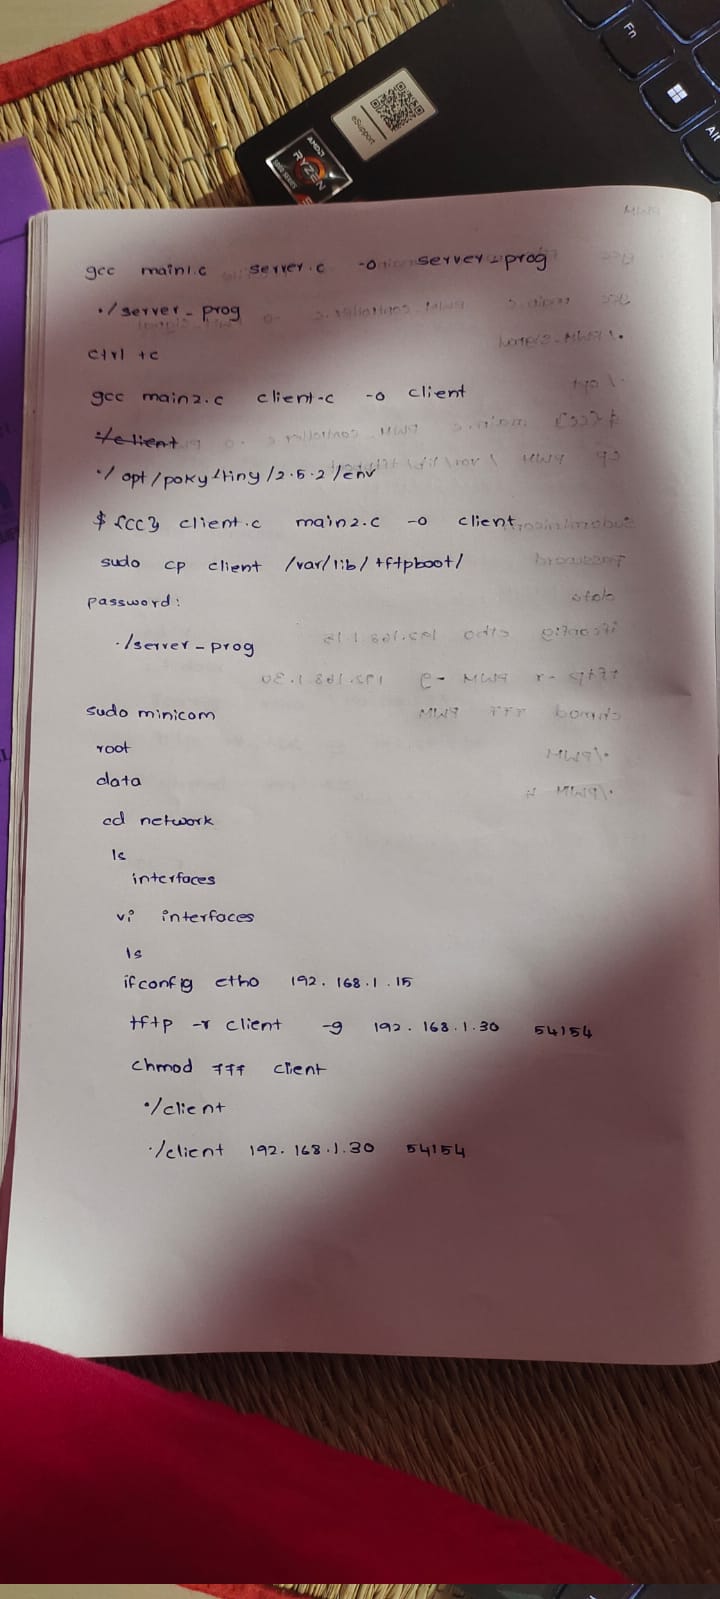 Fn
Alt
eSupport
AMD
RYZEN
gcc main1.c server.c -o server-prog
./server-prog
ctrl +c
gcc main2.c client.c -o client
./client
./opt/poky-tiny/2.5.2/env
${CC} client.c main2.c -o client
sudo cp client /var/lib/tftpboot/
password:
./server-prog
sudo minicom
root
data
cd network
ls
interfaces
vi interfaces
ls
ifconfig eth0 192.168.1.15
tftp -r client -g 192.168.1.30 54154
chmod 777 client
./client
./client 192.168.1.30 54154